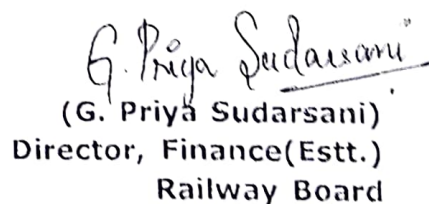 G. Priya Sudarsani
(G. Priya Sudarsani)
Director, Finance(Estt.)
Railway Board